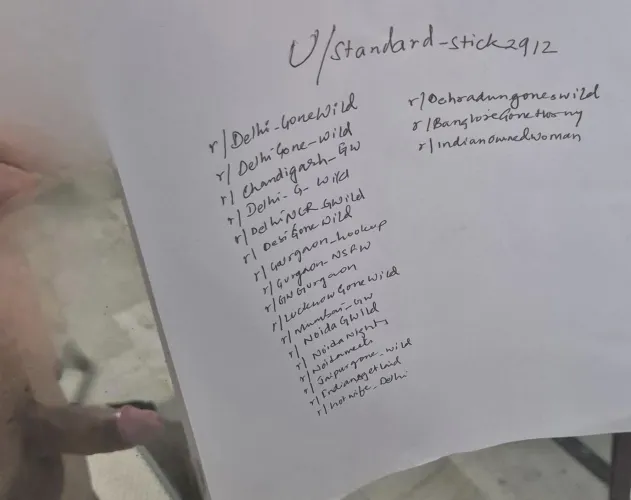 U/Standard-stick2912
r/Delhi-GoneWild
r/DelhiGone-wild
r/Chandigarh_GW
r/Delhi-G-Wild
r/DelhiNCR_GWild
r/DesiGoneWild
r/Gurgaon_hookup
r/Gurgaon_NSFW
r/GWGurgaon
r/LucknowGoneWild
r/Mumbai_GW
r/NoidaGWild
r/NoidaNights
r/Noidameets
r/Jaipurgone_wild
r/Indiansgetlaid
r/hotwife_Delhi
r/Dehradungoneswild
r/BangloreGoneHorny
r/Indianownedwoman